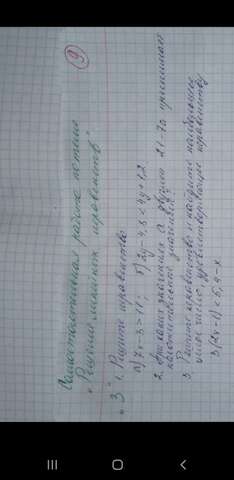 9
Самостоятельная работа по теме
"Решение линейных неравенств"
"3" 1. Решите неравенство
а) 7x-3>11; б) 2y-4,8<4y+1,2
2. При каких значениях а двучлен 21-7а принимает
положительные значения?
3. Решите неравенство и найдите наибольшее
целое число, удовлетворяющее неравенству
3(2x-1)<5,4-x